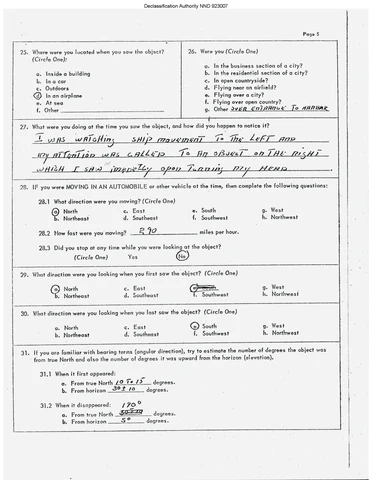 Declassification Authority NND 923007
Page 5
25. Where were you located when you saw the object?
(Circle One):
a. Inside a building
b. In a car
c. Outdoors
d. In an airplane
e. At sea
f. Other
26. Were you (Circle One)
a. In the business section of a city?
b. In the residential section of a city?
c. In open countryside?
d. Flying near an airfield?
e. Flying over a city?
f. Flying over open country?
g. Other OVER ENTRANCE TO HARBOR
27. What were you doing at the time you saw the object, and how did you happen to notice it?
I WAS WATCHING SHIP MOVEMENT TO THE LEFT AND
MY ATTENTION WAS CALLED TO AN OBJECT ON THE RIGHT
WHICH I SAW upon TURNING MY HEAD
28. IF you were MOVING IN AN AUTOMOBILE or other vehicle at the time, then complete the following questions:
28.1 What direction were you moving? (Circle One)
a. North c. East e. South g. West
b. Northeast d. Southeast f. Southwest h. Northwest
28.2 How fast were you moving? 290 miles per hour.
28.3 Did you stop at any time while you were looking at the object?
(Circle One) Yes No
29. What direction were you looking when you first saw the object? (Circle One)
a. North c. East g. West
b. Northeast d. Southeast f. Southwest h. Northwest
30. What direction were you looking when you last saw the object? (Circle One)
a. North c. East e. South g. West
b. Northeast d. Southeast f. Southwest h. Northwest
31. If you are familiar with bearing terms (angular direction), try to estimate the number of degrees the object was
from true North and also the number of degrees it was upward from the horizon (elevation).
31.1 When it first appeared:
a. From true North 10 To 15 degrees.
b. From horizon degrees.
31.2 When it disappeared: 190°
a. From true North degrees.
b. From horizon 5° degrees.